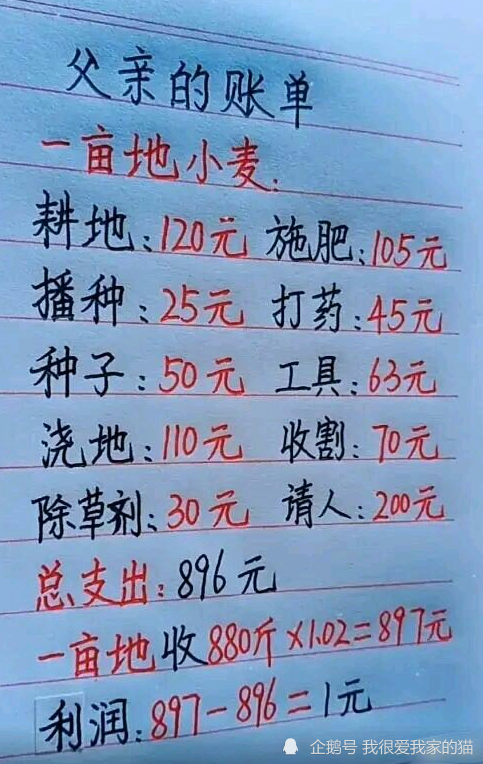 父亲的账单
一亩地小麦：
耕地：120元 施肥：105元
播种：25元 打药：45元
种子：50元 工具：63元
浇地：110元 收割：70元
除草剂：30元 请人：200元
总支出：896元
一亩地收880斤×1.02=897元
利润：897-896=1元
企鹅号 我很爱我家的猫